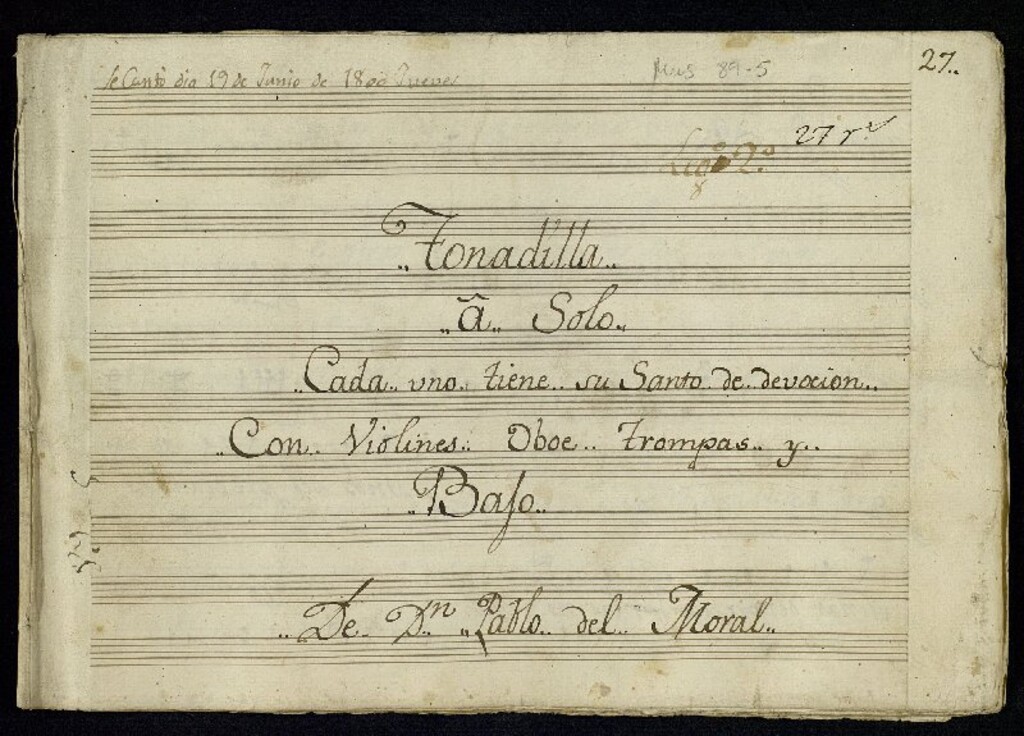 se Cantó dia 19 de Junio de 1800 Jueves
Mus 89-5
27..
27 r.
Leg.o 2.o
.. Tonadilla ..
.. â .. Solo ..
.. Cada .. vno .. tiene .. su Santo .. de .. devocion ..
.. Con .. Violines .. Oboe .. trompas .. y ..
.. Bajo ..
.. De .. D.n .. Pablo .. del .. Moral ..